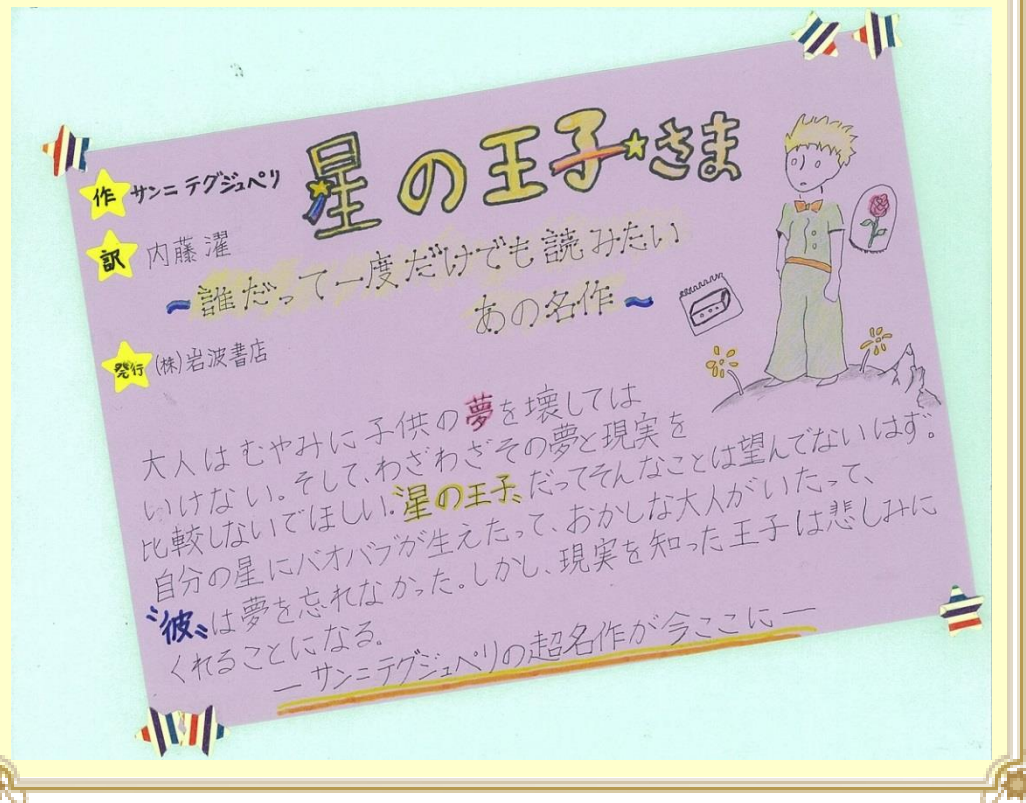 星の王子さま
作 サンニテグジュペリ
訳 内藤濯
~誰だって一度だけでも読みたい
あの名作~
発行 (株)岩波書店
大人はむやみに子供の夢を壊しては
いけない。そして、わざわざその夢と現実を
比較しないでほしい。〝星の王子〟だってそんなことは望んでないはず。
自分の星にバオバブが生えたって、おかしな大人がいたって、
〝彼〟は夢を忘れなかった。しかし、現実を知った王子は悲しみに
くれることになる。
—サンニテグジュペリの超名作が今ここに—